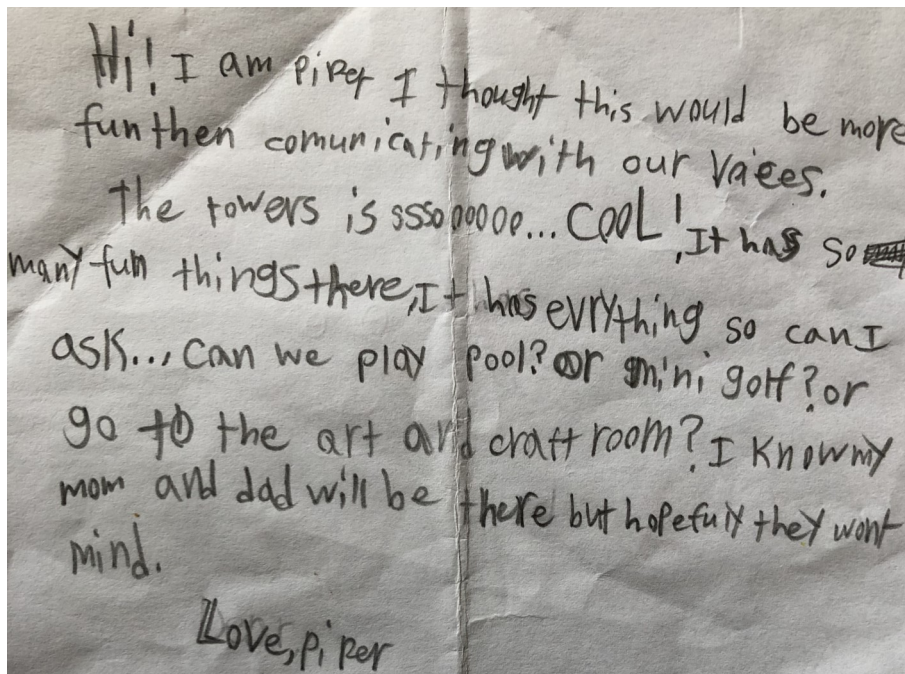 Hi! I am piper I thought this would be more
fun then comunicating with our Voices.
The towers is sssoooooo... COOL! It has so
many fun things there, It has evrything so can I
ask... can we play pool? or mini golf? or
go to the art and craft room? I know my
mom and dad will be there but hopefuly they wont
mind.
Love, piper